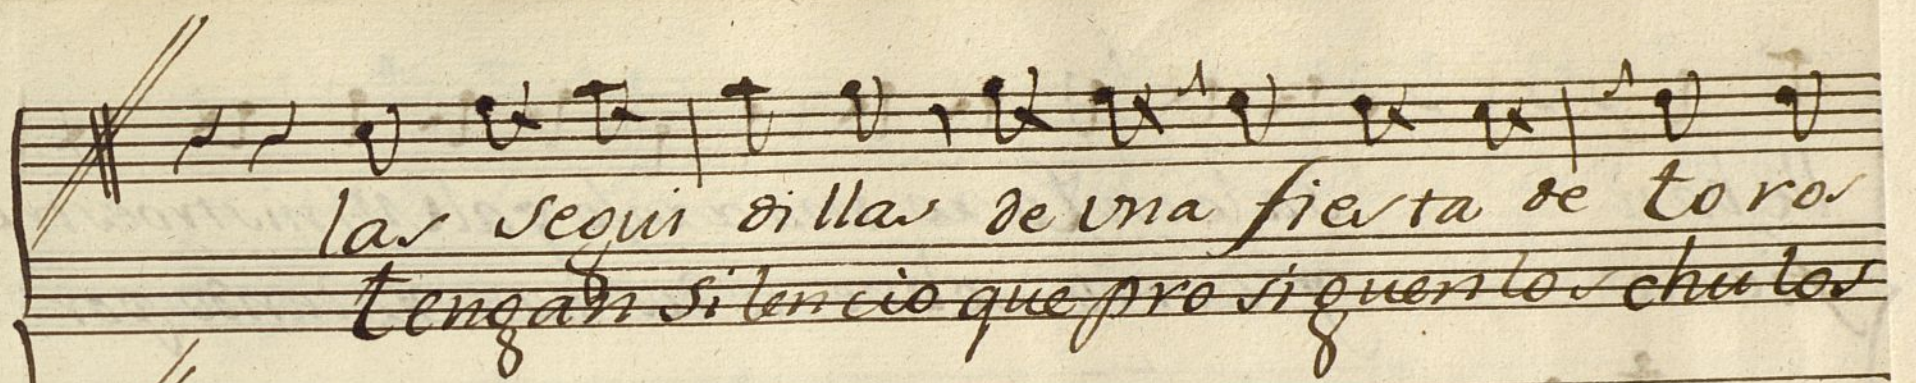 las segui dillas de una fiesta de toros
tengan silencio que pro siguen los chulos